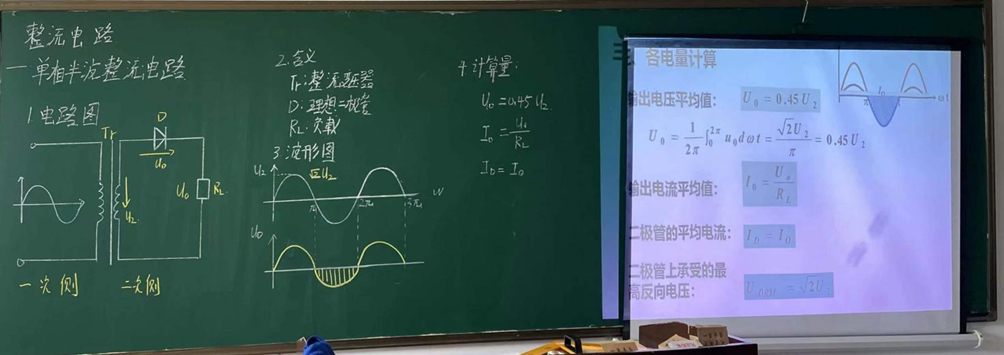 整流电路
一 单相半波整流电路
1 电路图
Tr
D
U₀
U₂
U₀
RL
一次侧
二次侧
2.含义
Tr:整流变压器
D:理想二极管
RL:负载
3.波形图
U₂
π
2π
3π
U₀
4.计算量:
U₀=0.45U₂
I₀=U₀/RL
ID=I₀
三、各电量计算
输出电压平均值: U₀ = 0.45 U₂
U₀ = 1/2π ∫₀^2π u₀dωt = √2U₂/π = 0.45 U₂
输出电流平均值: I₀ = U₀/RL
二极管的平均电流: ID = I₀
二极管上承受的最
高反向电压:
ωt